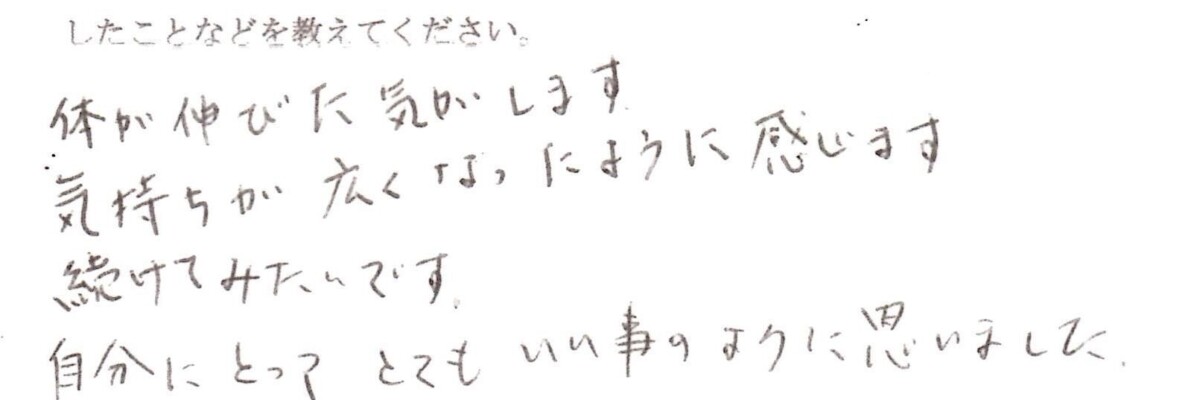 したことなどを教えてください。
体が伸びた気がします
気持ちが広くなったように感じます
続けてみたいです.
自分にとって とても いい事のように思いました.